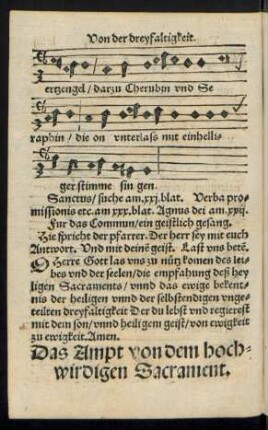 Von der dreyfaltigkeit.
ertzengel / darzu Cherubin vnd Se
raphin / die on vnterlaß mit einhelli-
ger stimme sin gen.
Sanctus / suche am. xxj. blat. Verba pro-
missionis etc. am xxx. blat. Agnus dei am. xxxj.
Fur das Commun / ein geistlich gesang.
Hie spricht der pfarrer. Der herr sey mit euch
Antwort. Vnd mit deinẽ geist. Last vns betẽ.
O Herre Gott las vns zu nutz komen des lei-
bes vnd der seelen / die empfahung deß hey
ligen Sacraments / vnnd das ewige bekent-
nis der heiligen vnnd der selbstendigen vnge-
teilten dreyfaltigkeit Der du lebst vnd regierest
mit dem son / vnnd heiligem geist / von ewigkeit
zu ewigkeit. Amen.
Das Ampt von dem hoch-
wirdigen Sacrament.